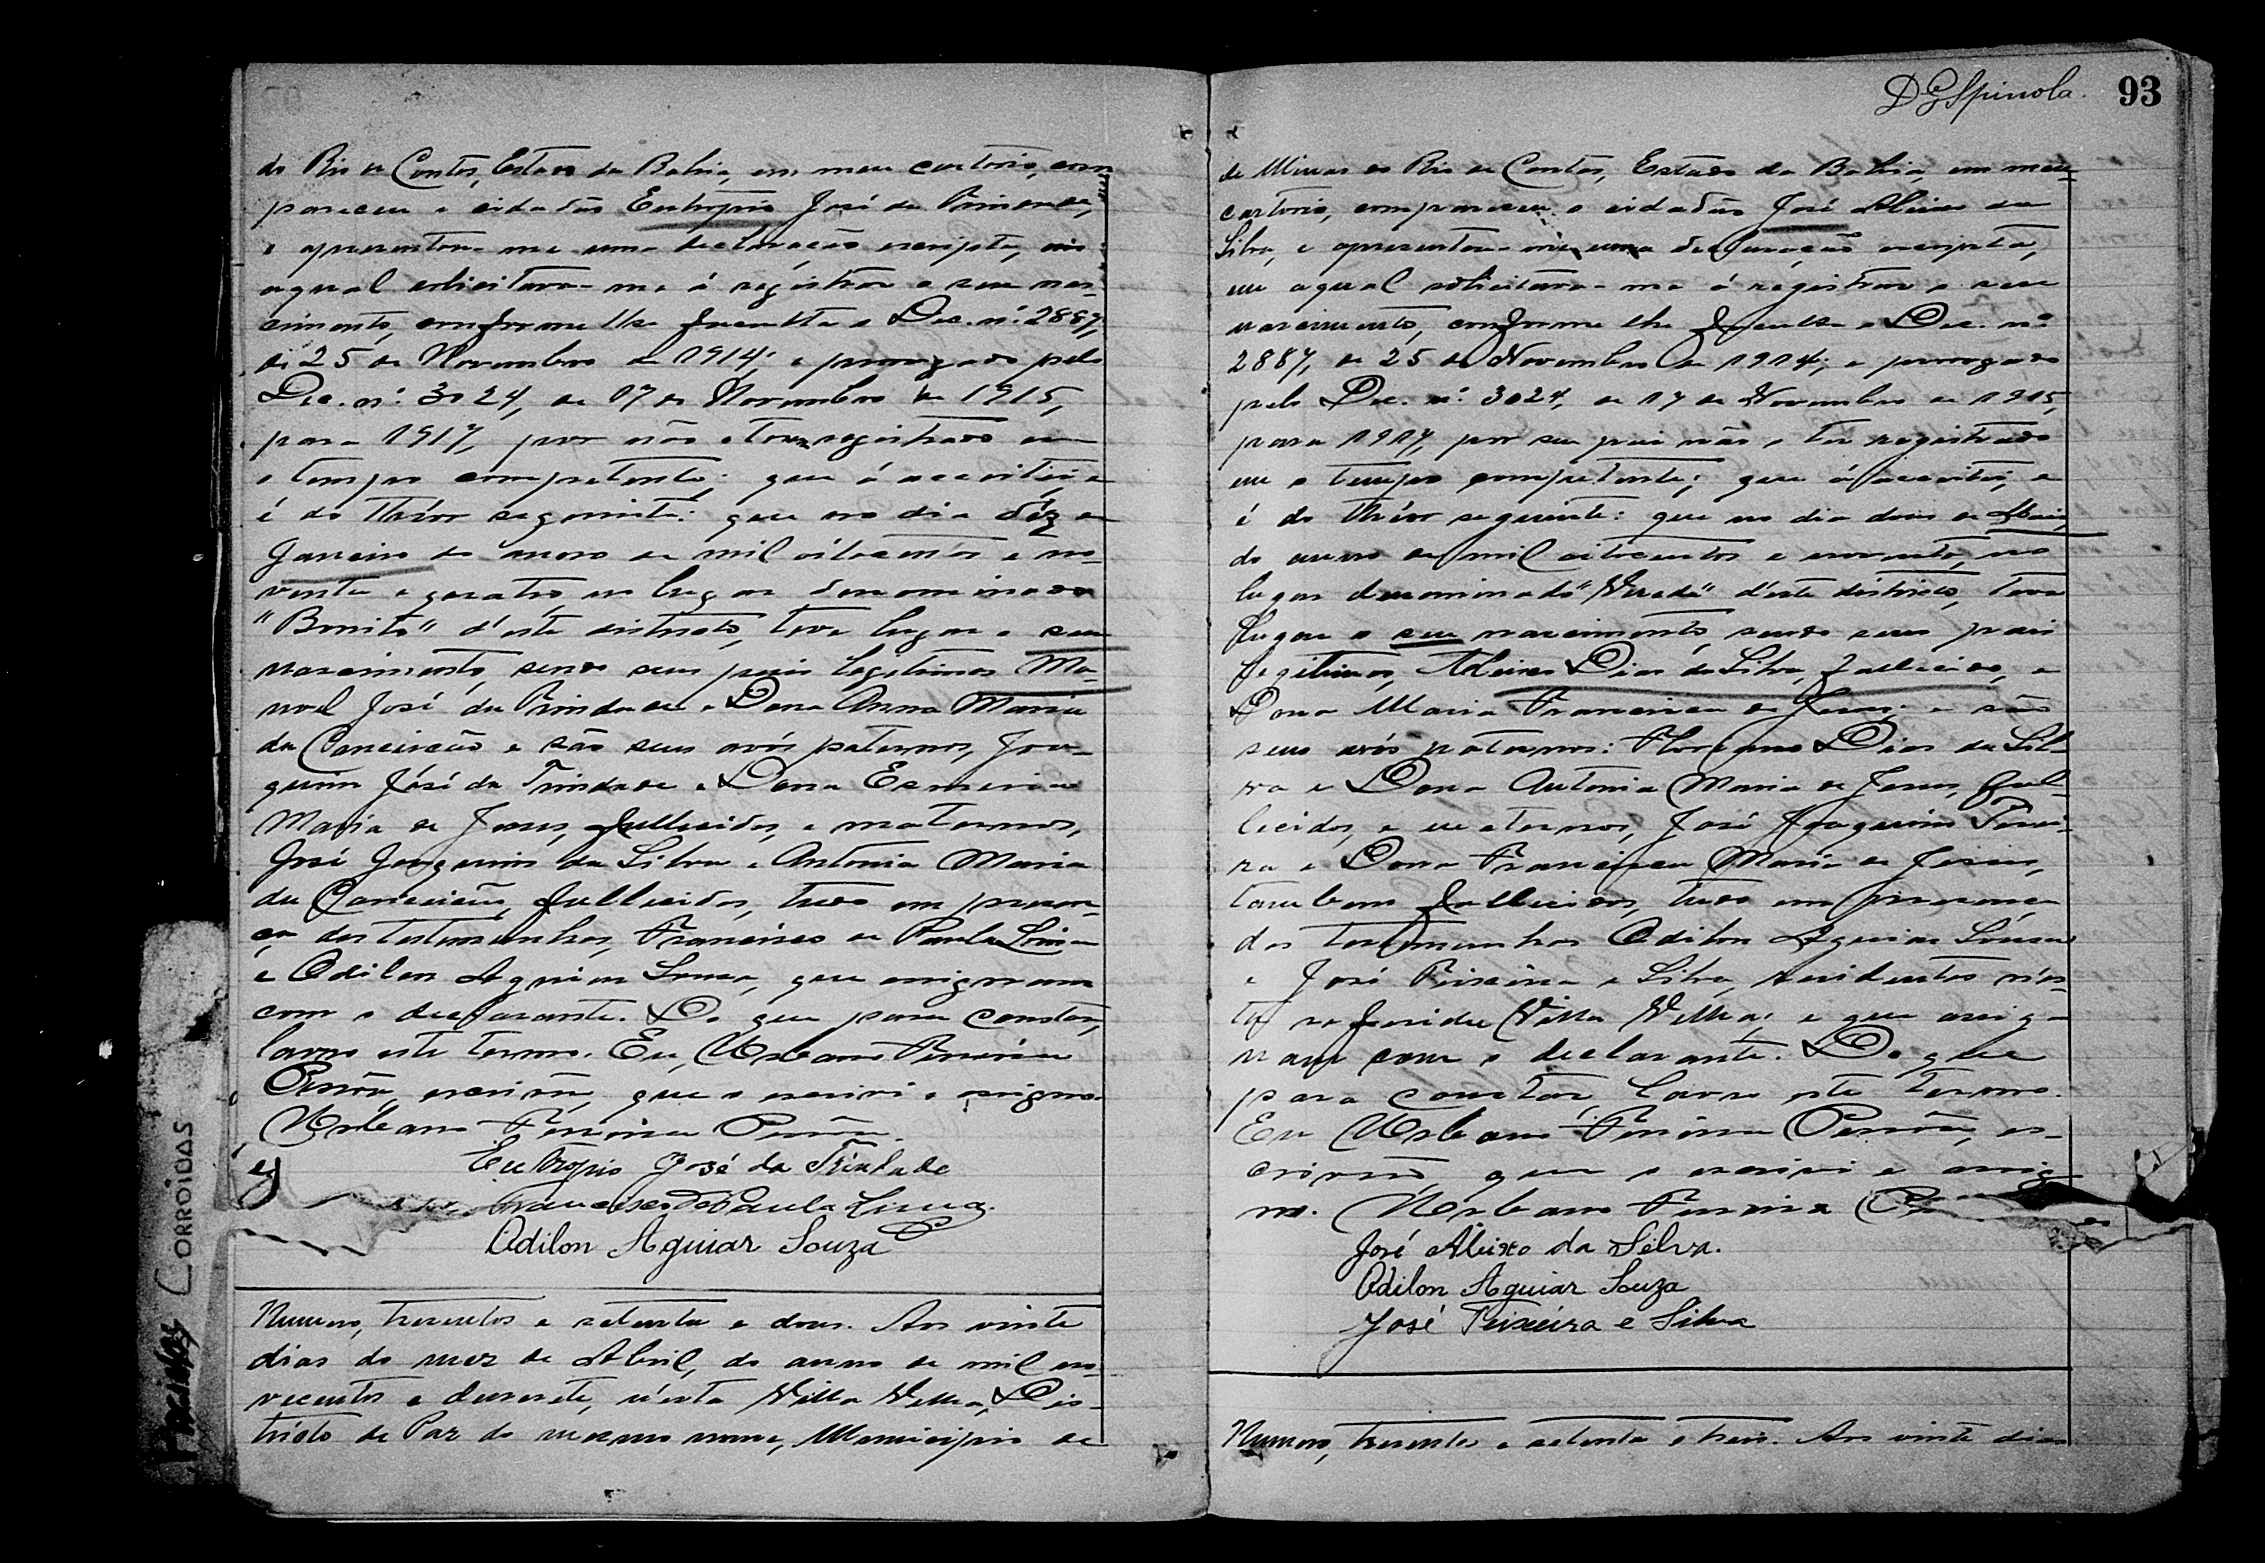 do Rio de Contas, Estado da Bahia, em meu cartorio, com
pareceu o cidadão Eutropio José da Trindade,
e apresentou-me uma declaração escripta, na
aqual solicitava-me á registrar o seu nas-
cimento, conforme lhe faculta o Dec. nº. 2887,
de 25 de Novembro de 1914, e prorogado pelo
Dec. nº. 3024, de 17 de Novembro de 1915,
para 1917, por não o ter registrado em
o tempo competente; que á acceitei, e
é do theôr seguinte: que no dia déz de
Janeiro do anno de mil oitocentos e no-
venta e quatro, no lugar denominado
"Bonito" d'este districto, teve lugar o seu
nascimento, sendo seus paes legitimos Ma-
noel José da Trindade e Dona Anna Maria
da Conceicão e são seus avós paternos, Joa-
quim José da Trindade e Dona
Maria de Jesus, fallecidos, e maternos,
José Joaquim da Silva e Antonia Maria
da Conceicão, fallecidos, tudo em presen-
ça das testemunhas, Francisco de Paula Lima
e Odilon Aguiar Souza, que assignaram
com o declarante. Do que para constar,
lavro este termo. Eu, Urbano Ferreira
escrivão, que o escrivi e assigno.
Urbano Ferreira
Eutropio José da Trindade
Francisco de Paula Lima.
Odilon Aguiar Souza
Numero, tresentos e setenta e dous. Aos vinte
dias do mez de Abril, do anno de mil no-
vecentos e dezesete, n'esta Villa Velha, Dis-
tricto de Paz do mesmo nome, Municipio de
D. G. Spinola. 93
de Minas do Rio de Contas, Estado da Bahia, em meu
cartorio, compareceu o cidadão José Aleixo da
Silva, e apresentou-me uma declaração escripta,
em aqual solicitava-me á registrar o seu
nascimento, conforme lhe faculta o Dec. nº
2887, de 25 de Novembro de 1914, e prorogado
pelo Dec. nº. 3024, de 17 de Novembro de 1915,
para 1917, por seu pai não o ter registrado
em o tempo competente; que á acceitei, e
é do theôr seguinte: que no dia dous de Maio,
do anno de mil oitocentos e noventa, no
lugar denominado "Vereda" d'este districto, teve
lugar o seu nascimento, sendo seus paes
legitimos, Aleixo Dias da Silva, fallecido, e
Dona Maria Francisca de Jesus; e são
seus avós paternos: Floreano Dias da Sil-
va e Dona Antonia Maria de Jesus, fal-
lecidos, e maternos, José Joaquim Perei-
ra e Dona Francisca Maria de Jesus,
tambem fallecidos, tudo em presença
das testemunhas Odilon Aguiar Souza
e José Teixeira e Silva, residentes n'es-
ta referida Villa Velha; e que assig-
nam com o declarante. Do que
para constar, lavro este termo.
Eu Urbano Ferreira es-
crivão, que o escrivi e assig-
no. Urbano Ferreira
José Aleixo da Silva.
Odilon Aguiar Souza
José Teixeira e Silva
Numero, tresentos e setenta e treis. Aos vinte dias
CORROIDAS